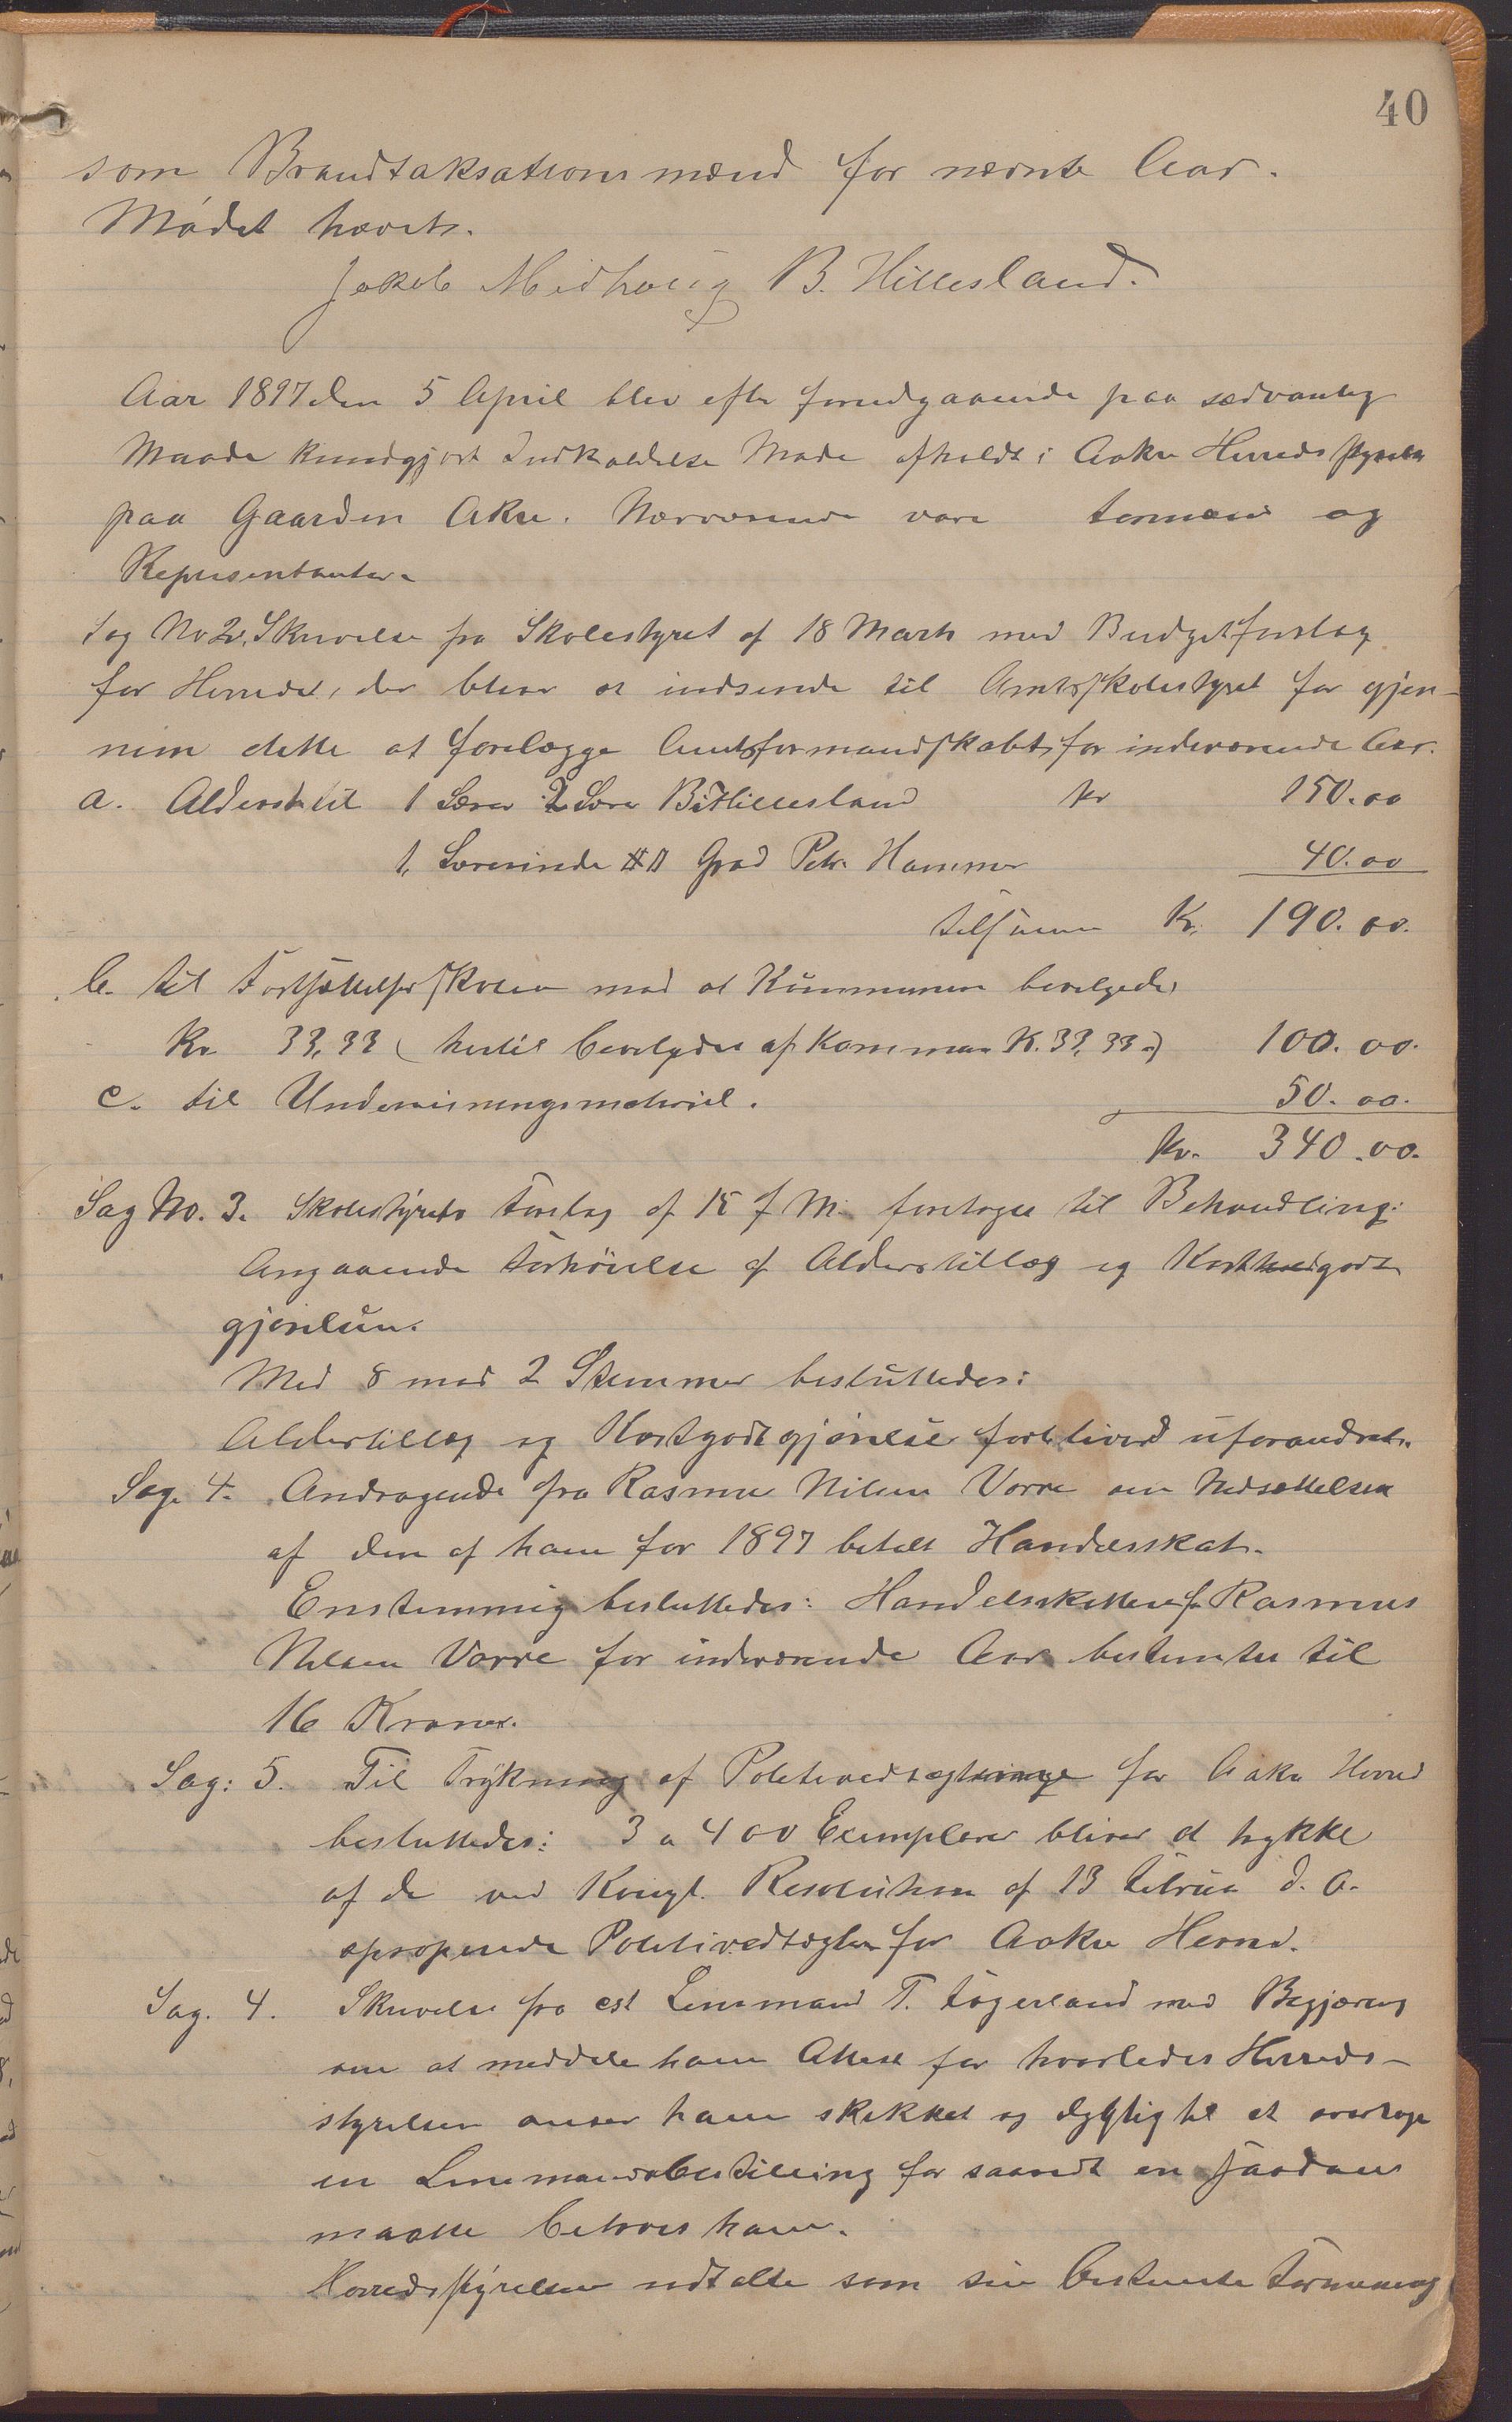 40
som Brandtaksationsmænd for næste Aar.
Mødet hævet.
Jakob Midhaug B. Hillesland.
Aar 1897 den 5 April blev efter forudgaaende paa sædvanlig
Maade kundgjort Indkaldelse Møde afholdt i Aakre Herredsstyrelse
paa Gaarden Akre. Nærværende vare formænd og
Repræsentanter.
Sag No 2. Skrivelse fra Skolestyret af 18 Marts med Budgetforslag
for Herredet, der bliver at indsende til Amtsskolestyret for gjen-
nem dette at forelægge Amtsformandskabet for indeværende Aar.
a. Alderstil 1 Lærer 2 Lærer B. Hillesland kr 150.00
1, Lærerinde Grad Petr. Hammer 40.00
tilsammen Kr. 190.00.
b. til Fortsættelsesskolen mod at Kommunen bevilgede
Kr. 33,33 (hertil bevilgedes af Kommunen K. 33,33.) 100.00.
c. til Undervisningsmateriel. 50.00.
kr. 340.00.
Sag No. 3. Skolestyrets Forslag af 15 f M. foretages til Behandling:
Angaaende Forhøielse af Alderstillæg og Kostgodt
gjørelsen.
Med 8 mod 2 Stemmer besluttedes:
Alderstillæg og Kostgodtgjørelse forbliver uforandret.
Sag. 4. Andragende fra Rasmus Nilsen Vorre om Nedsættelsen
af den af ham for 1897 betalt Handelsskat.
Enstemmig besluttedes: Handelsskatten for Rasmus
Nilsen Vorre for indeværende Aar bestemtes til
16 Kroner.
Sag: 5. Til Trykning af Politivedtægterne for Aakre Herred
besluttedes: 3 a 400 Exemplarer bliver at trykke
af de ved Kongl. Resolution af 13 Februar d. A.
approperede Politivedtægter for Aakre Herred.
Sag. 4. Skrivelse fra cst Lensmand T. Fagerland med Begjæring
om at meddele ham Attest for hvorledes Herreds-
styrelsen anser ham skikket og dygtig til at overtage
en Lensmandsbestilling for saavidt en saadan
maatte betroes ham.
Herredsstyrelsen udtalte som sin bestemte Formening